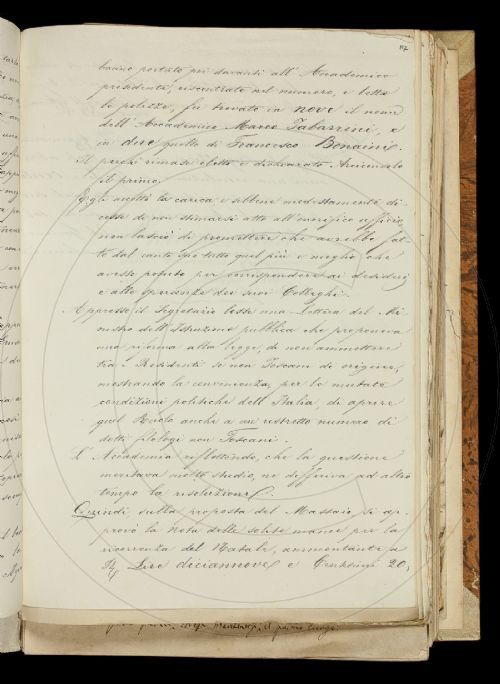 117
bacino portato poi davanti all'Accademico
presidente, riscontrato nel numero, e lette
le polizze, fu trovato in nove il nome
dell'Accademico Marco Tabarrini, e
in dieci quello di Francesco Bonaini.
Il perchè rimase eletto e dichiarato Arciconsolo
il primo.
Egli accettò la carica, e sebbene modestamente di-
cesse di non stimarsi atto all'onorifico officio,
non lasciò di promettere che avrebbe fat-
to dal canto suo tutto quel più e meglio che
avesse potuto per corrispondere ai desiderj
e alle speranze dei suoi Colleghi.
Appresso il Segretario lesse una Lettera del Mi-
nistro dell'Istruzione pubblica che proponeva
una riforma alla legge, di non ammettere
tra i Residenti se non Toscani di origine,
mostrando la convenienza, per le mutate
condizioni politiche dell'Italia, di aprire
quel Ruolo anche a un ristretto numero di
dotti filologi non Toscani.
L'Accademia riflettendo, che la questione
meritava molto studio, ne differiva ad altro
tempo la risoluzione.
Quindi sulla proposta del Massaio, si ap-
provò la nota delle solite mance per la
ricorrenza del Natale, ammontante a
Lire diciannove e Centesimi 20,
il primo luogo.